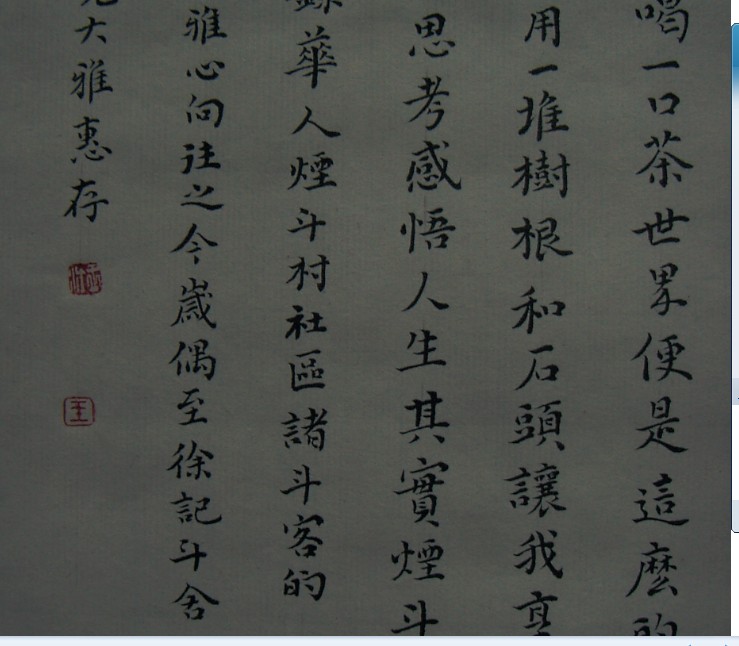 喝一口茶世界便是這麼的
用一堆樹根和石頭讓我
思考感悟人生其實煙斗
華人煙斗村社區諸斗客的
雅心向往之今歲偶至徐記斗舍
大雅惠存
王